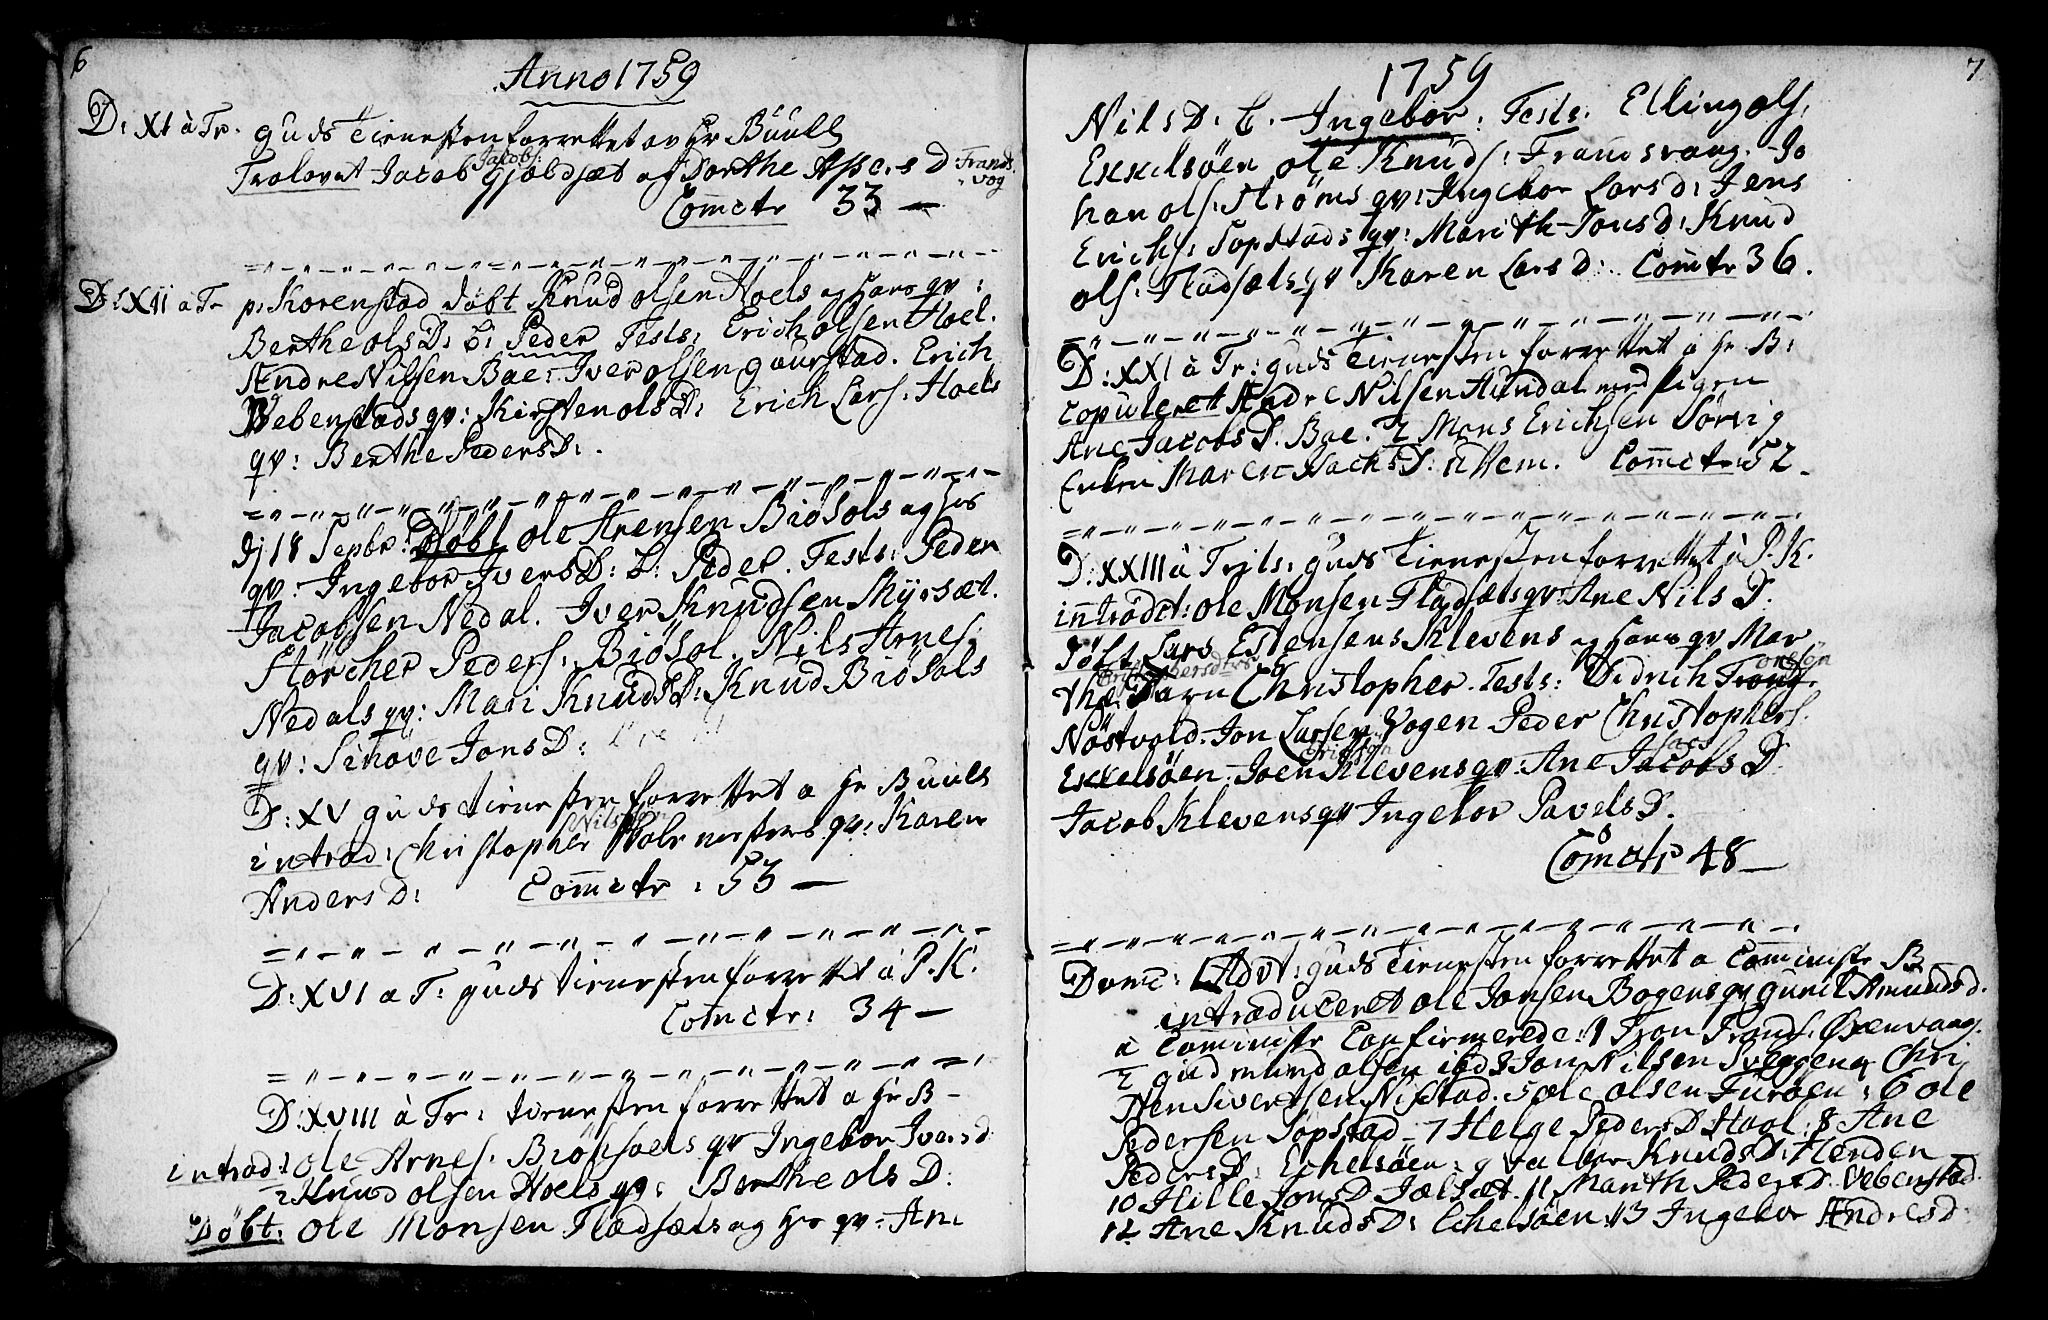 6
Anno 1759
D: XI à Tr. guds Tienesten forrettet av Hr Buull
Trolovet Jacob Jakobs: Gjøldsæt og Dorthe Asses D Trands
vog
Com̅ctr 33 —
D: XII à Tr p: Korenstad døbt Knud olsen Hoels og Hans qv:
Berthe ols D: b: Peder Tests: Erich olsen Hoel.
Andre Nilsen Bae: Iver olsen gaurstad. Erich
Vebenstads qv: Kirsten ols D: Erich Lars: Hoels
qv: Berthe Peders D:.
Dj 18 Sepbr: Døbt ole Arensen Biösols og hs
qv: Ingebor Ivers D: b: Peder. Tests: Peder
Jacobsen Nedal. Iver Knudsen Myrsæt.
Störcher Peders: Biösol. Nils Arnes:
Nedals qv: Mari Knuds D: Knud Biösols
qv: Sinove Jons D:
D: XV guds tienesten forrettet a Hr Buull
Nilssøn
introd: Christopher Holmesters qv: Karen
Anders D: Com̅ctr: 53 —
D: XVI a T: guds tienesten forrettet à P. K.
Com̅ctr: 34 —
D: XVIII à Tr: tienesten forrettet a Hr B –
introd: 1 ole Arnes. Biössoels qv Ingebor Ivers d
2 Knud olsen Hoels qv: Berthe ols D:
Døbt: ole Monsen Fladsæts og hs qv: Ane
7
1759
Nils D: b. Ingebor: Tests. Elling ols:
Exkelsöen ole Knuds: Fransvaag. Jo
han ols: Ströms qv: Ingebor Lars d: Jens
Erichs: Sopstads qv: Marith Jons D: Knud
ols: Fladsæts qv Karen Lars D: Com̅tr 36.
D: XXI à Tr: guds Tienesten forrettet à Hr B:
copuleret Andre Nilsen Hundal med pigen
Ane Jacobs D. Bae. 2 Mons Erichsen Sörvig
Enken Maren Isachs D: ùthem. Com̅ctr 52 –
D: XXIII à Trits: guds Tienesten forrettet à P. K.
introdct: ole Monsen Fladsæts qv: Ane Nils D.
døbt Lars Estensens Klevens og Hans qv Mar
the barn Christopher. Tests: Didrich Trond: onssøn
Nöstvold. Jon Larsen Vogen Peder Christophers.
Exkelsöen. Joen Klevens qv: Ane Jacobs D.
Jacob Klevens qv Ingebor Pavels D.
Com̅ctr 48 —
Domc: I Advt: guds Tienesten forrettet a Com̅inistr B
introduceret ole Jonsen Bogens qv gunil Amunds d.
à Com̅inistr Confirmerede: 1 Tron Tronds: Öxenvaag.
2 gudmund olsen ibd 3 Jon Nilsen Sveggen 4 Chri
sten Siversen Nistad. 5 ole olsen Furöen: 6 ole
Pedersen Sopstad – 7 Helge Peders D Haal: 8 Ane
Peders D: Eckelsöen: 9 Valbor Knuds D: Henden
10 Hille Jons D Jælsæt. 11 Marith Peders D. Vebenstad.
12 Ane Knuds D: Eckelsöen: 13 Ingebor Andres d: